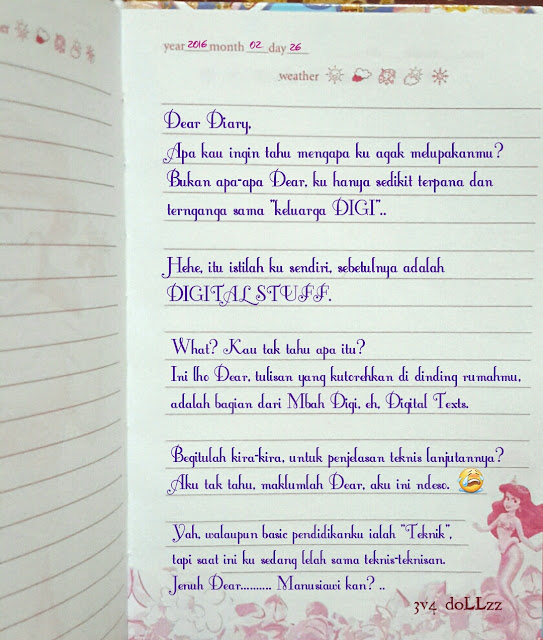 er
year 2016 month 02 day 26
weather
Dear Diary,
Apa kau ingin tahu mengapa ku agak melupakanmu?
Bukan apa-apa Dear, ku hanya sedikit terpana dan
ternganga sama "keluarga DIGI"..
Hehe, itu istilah ku sendiri, sebetulnya adalah
DIGITAL STUFF.
What? Kau tak tahu apa itu?
Ini lho Dear, tulisan yang kutorehkan di dinding rumahmu,
adalah bagian dari Mbah Digi, eh, Digital Texts.
Begitulah kira-kira, untuk penjelasan teknis lanjutannya?
Aku tak tahu, maklumlah Dear, aku ini ndeso.
Yah, walaupun basic pendidikanku ialah "Teknik",
tapi saat ini ku sedang lelah sama teknis-teknisan.
Jenuh Dear.......... Manusiawi kan? ..
3v4 doLLzz